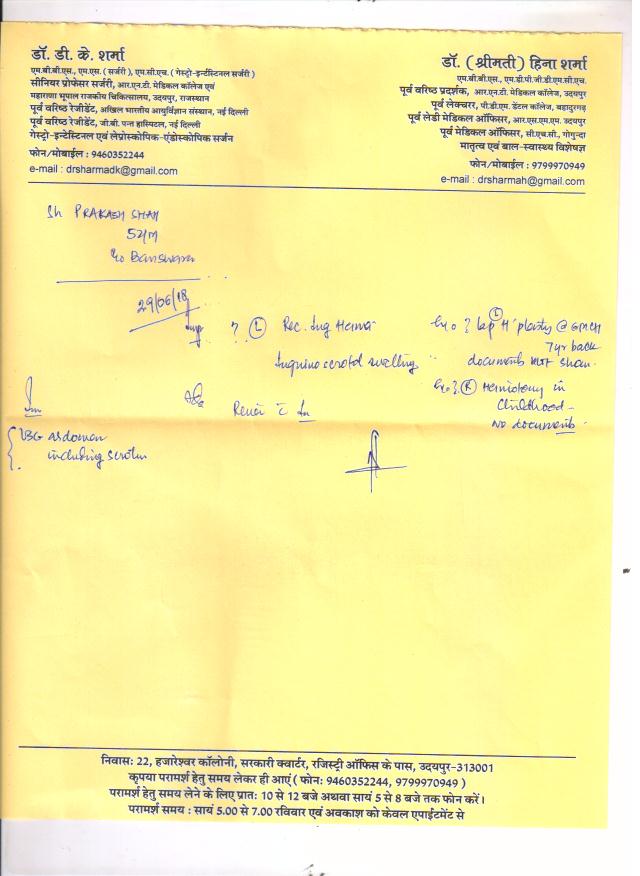 डॉ. डी. के. शर्मा
एम.बी.बी.एस., एम.एस. ( सर्जरी ), एम.सी.एच. ( गेस्ट्रो-इन्टेंस्टिनल सर्जरी )
सीनियर प्रोफेसर सर्जरी, आर.एन.टी. मेडिकल कॉलेज एवं
महाराणा भूपाल राजकीय चिकित्सालय, उदयपुर, राजस्थान
पूर्व वरिष्ठ रेजीडेंट, अखिल भारतीय आयुर्विज्ञान संस्थान, नई दिल्ली
पूर्व वरिष्ठ रेजीडेंट, जी.बी. पन्त हास्पिटल, नई दिल्ली
गेस्ट्रो-इन्टेस्टिनल एवं लेप्रोस्कोपिक-एंडोस्कोपिक सर्जन
फोन/मोबाईल : 9460352244
e-mail : drsharmadk@gmail.com
डॉ. (श्रीमती) हिना शर्मा
एम.बी.बी.एस., एम.डी.पी.जी.डी.एम.सी.एच.
पूर्व वरिष्ठ प्रदर्शक, आर.एन.टी. मेडिकल कॉलेज, उदयपुर
पूर्व लेक्चरर, पी.डी.एम. डेंटल कॉलेज, बहादुरगढ़
पूर्व लेडी मेडिकल ऑफिसर, आर.एस.एम.एम. उदयपुर
पूर्व मेडिकल ऑफिसर, सी.एच.सी., गोगुन्दा
मातृत्व एवं बाल-स्वास्थ्य विशेषज्ञ
फोन/मोबाईल : 9799970949
e-mail : drsharmah@gmail.com
Sh PRAKASH SHAH
52/M
Banswara
29/06/18
? (L) Rec. Ing Hernia
Inguino scrotal swelling
H/o ? lap (L) H'plasty @ GMCH
7 yr back
documents not shown
H/o ? (R) Herniotomy in
Childhood -
No documents
USG abdomen
including scrotum
निवास: 22, हजारेश्वर कॉलोनी, सरकारी क्वार्टर, रजिस्ट्री ऑफिस के पास, उदयपुर-313001
कृपया परामर्श हेतु समय लेकर ही आएं ( फोन: 9460352244, 9799970949 )
परामर्श हेतु समय लेने के लिए प्रातः 10 से 12 बजे अथवा सायं 5 से 8 बजे तक फोन करें।
परामर्श समय : सायं 5.00 से 7.00 रविवार एवं अवकाश को केवल एपाईटमेंट से